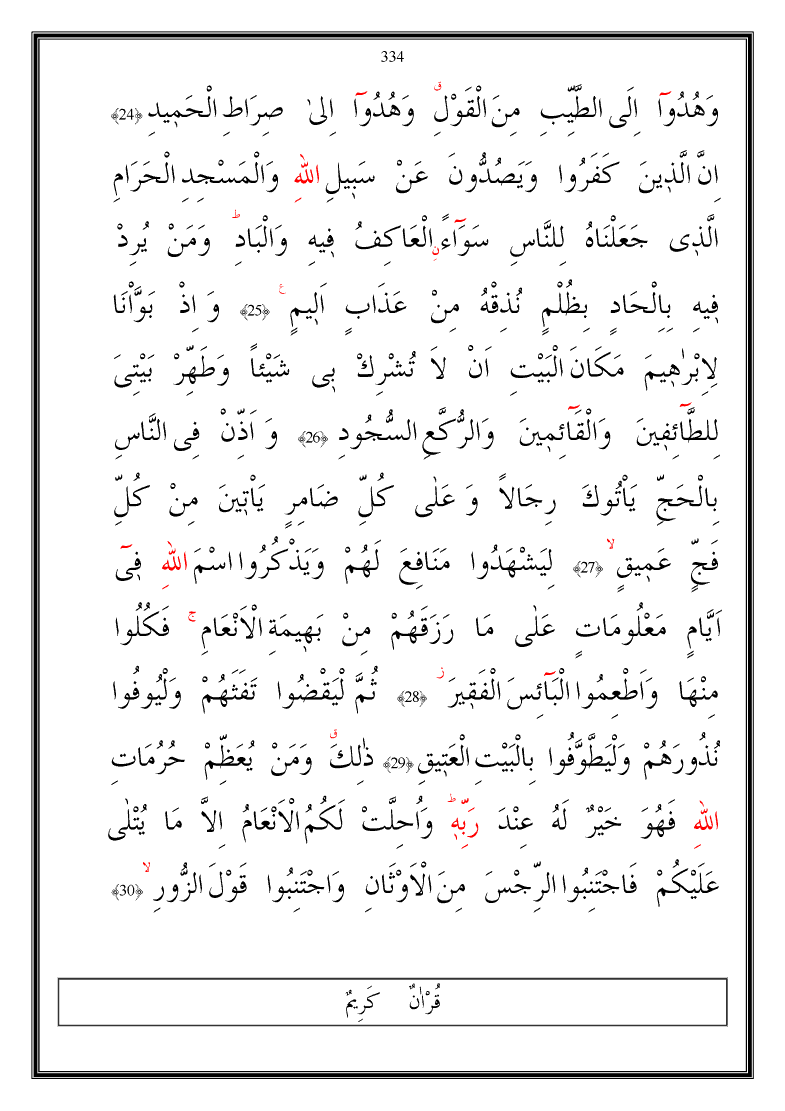 334
وَهُدُوٓا اِلَى الطَّيِّبِ مِنَ الْقَوْلِۗ وَهُدُوٓا اِلىٰ صِرَاطِ الْحَم۪يدِ ﴿24﴾
اِنَّ الَّذ۪ينَ كَفَرُوا وَيَصُدُّونَ عَنْ سَب۪يلِ اللّٰهِ وَالْمَسْجِدِ الْحَرَامِ
الَّذ۪ى جَعَلْنَاهُ لِلنَّاسِ سَوَٓاءًۨ الْعَاكِفُ ف۪يهِ وَالْبَادِۜ وَمَنْ يُرِدْ
ف۪يهِ بِاِلْحَادٍ بِظُلْمٍ نُذِقْهُ مِنْ عَذَابٍ اَل۪يمٍ۟ ﴿25﴾ وَ اِذْ بَوَّاْنَا
لِاِبْرٰه۪يمَ مَكَانَ الْبَيْتِ اَنْ لَا تُشْرِكْ ب۪ى شَيْئاً وَطَهِّرْ بَيْتِىَ
لِلطَّٓائِف۪ينَ وَالْقَٓائِم۪ينَ وَالرُّكَّعِ السُّجُودِ ﴿26﴾ وَ اَذِّنْ فِى النَّاسِ
بِالْحَجِّ يَاْتُوكَ رِجَالاً وَ عَلٰى كُلِّ ضَامِرٍ يَاْت۪ينَ مِنْ كُلِّ
فَجٍّ عَم۪يقٍۙ ﴿27﴾ لِيَشْهَدُوا مَنَافِعَ لَهُمْ وَيَذْكُرُوا اسْمَ اللّٰهِ ف۪ٓى
اَيَّامٍ مَعْلُومَاتٍ عَلٰى مَا رَزَقَهُمْ مِنْ بَه۪يمَةِ الْاَنْعَامِۚ فَكُلُوا
مِنْهَا وَاَطْعِمُوا الْبَٓائِسَ الْفَق۪يرَۘ ﴿28﴾ ثُمَّ لْيَقْضُوا تَفَثَهُمْ وَلْيُوفُوا
نُذُورَهُمْ وَلْيَطَّوَّفُوا بِالْبَيْتِ الْعَت۪يقِ ﴿29﴾ ذٰلِكَۗ وَمَنْ يُعَظِّمْ حُرُمَاتِ
اللّٰهِ فَهُوَ خَيْرٌ لَهُ عِنْدَ رَبِّه۪ۜ وَاُحِلَّتْ لَكُمُ الْاَنْعَامُ اِلَّا مَا يُتْلٰى
عَلَيْكُمْ فَاجْتَنِبُوا الرِّجْسَ مِنَ الْاَوْثَانِ وَاجْتَنِبُوا قَوْلَ الزُّورِۙ ﴿30﴾
قُرْاٰنٌ كَرِيمٌ